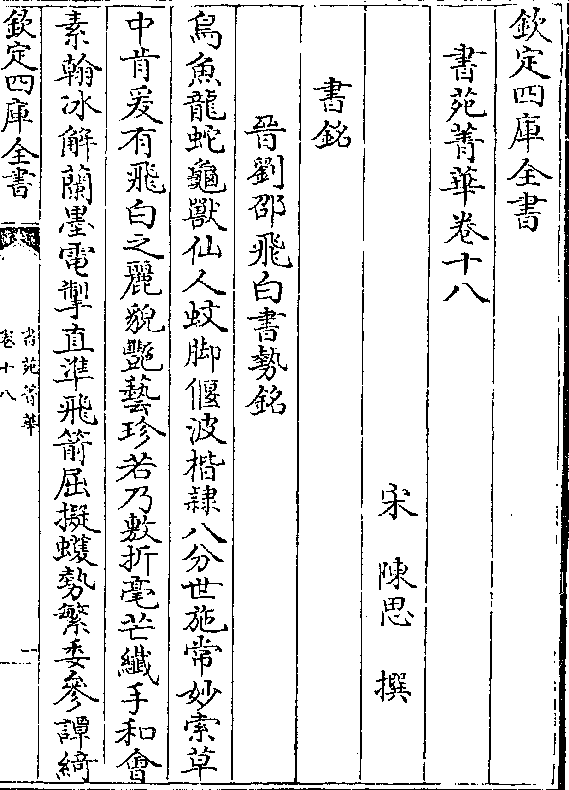 欽定四庫全書
書苑菁華卷十八
宋　陳思　撰
書銘
晉劉邵飛白書勢銘
鳥魚龍蛇龜獸仙人蚊脚偃波楷隸八分世施常妙索草
中肯爰有飛白之麗貌艷藝珍若乃敷折毫芒纖手和會
素翰冰解蘭墨電掣直準飛箭屈擬蠖勢繁委參譚綺
欽定四庫全書
書苑菁華
卷十八
一